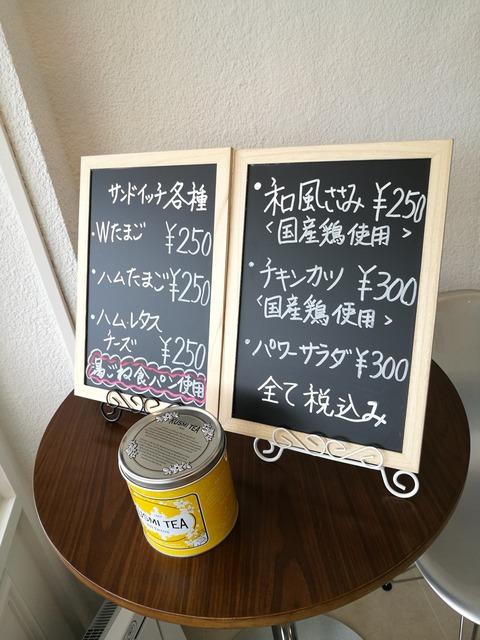 サンドイッチ各種
・Wたまご ¥250
・ハムたまご ¥250
・ハム・レタス
チーズ ¥250
湯ごね食パン使用
・和風ささみ ¥250
<国産鶏使用>
・チキンカツ ¥300
<国産鶏使用>
・パワーサラダ ¥300
全て税込み
KUSMI TEA
KUSMI TEA